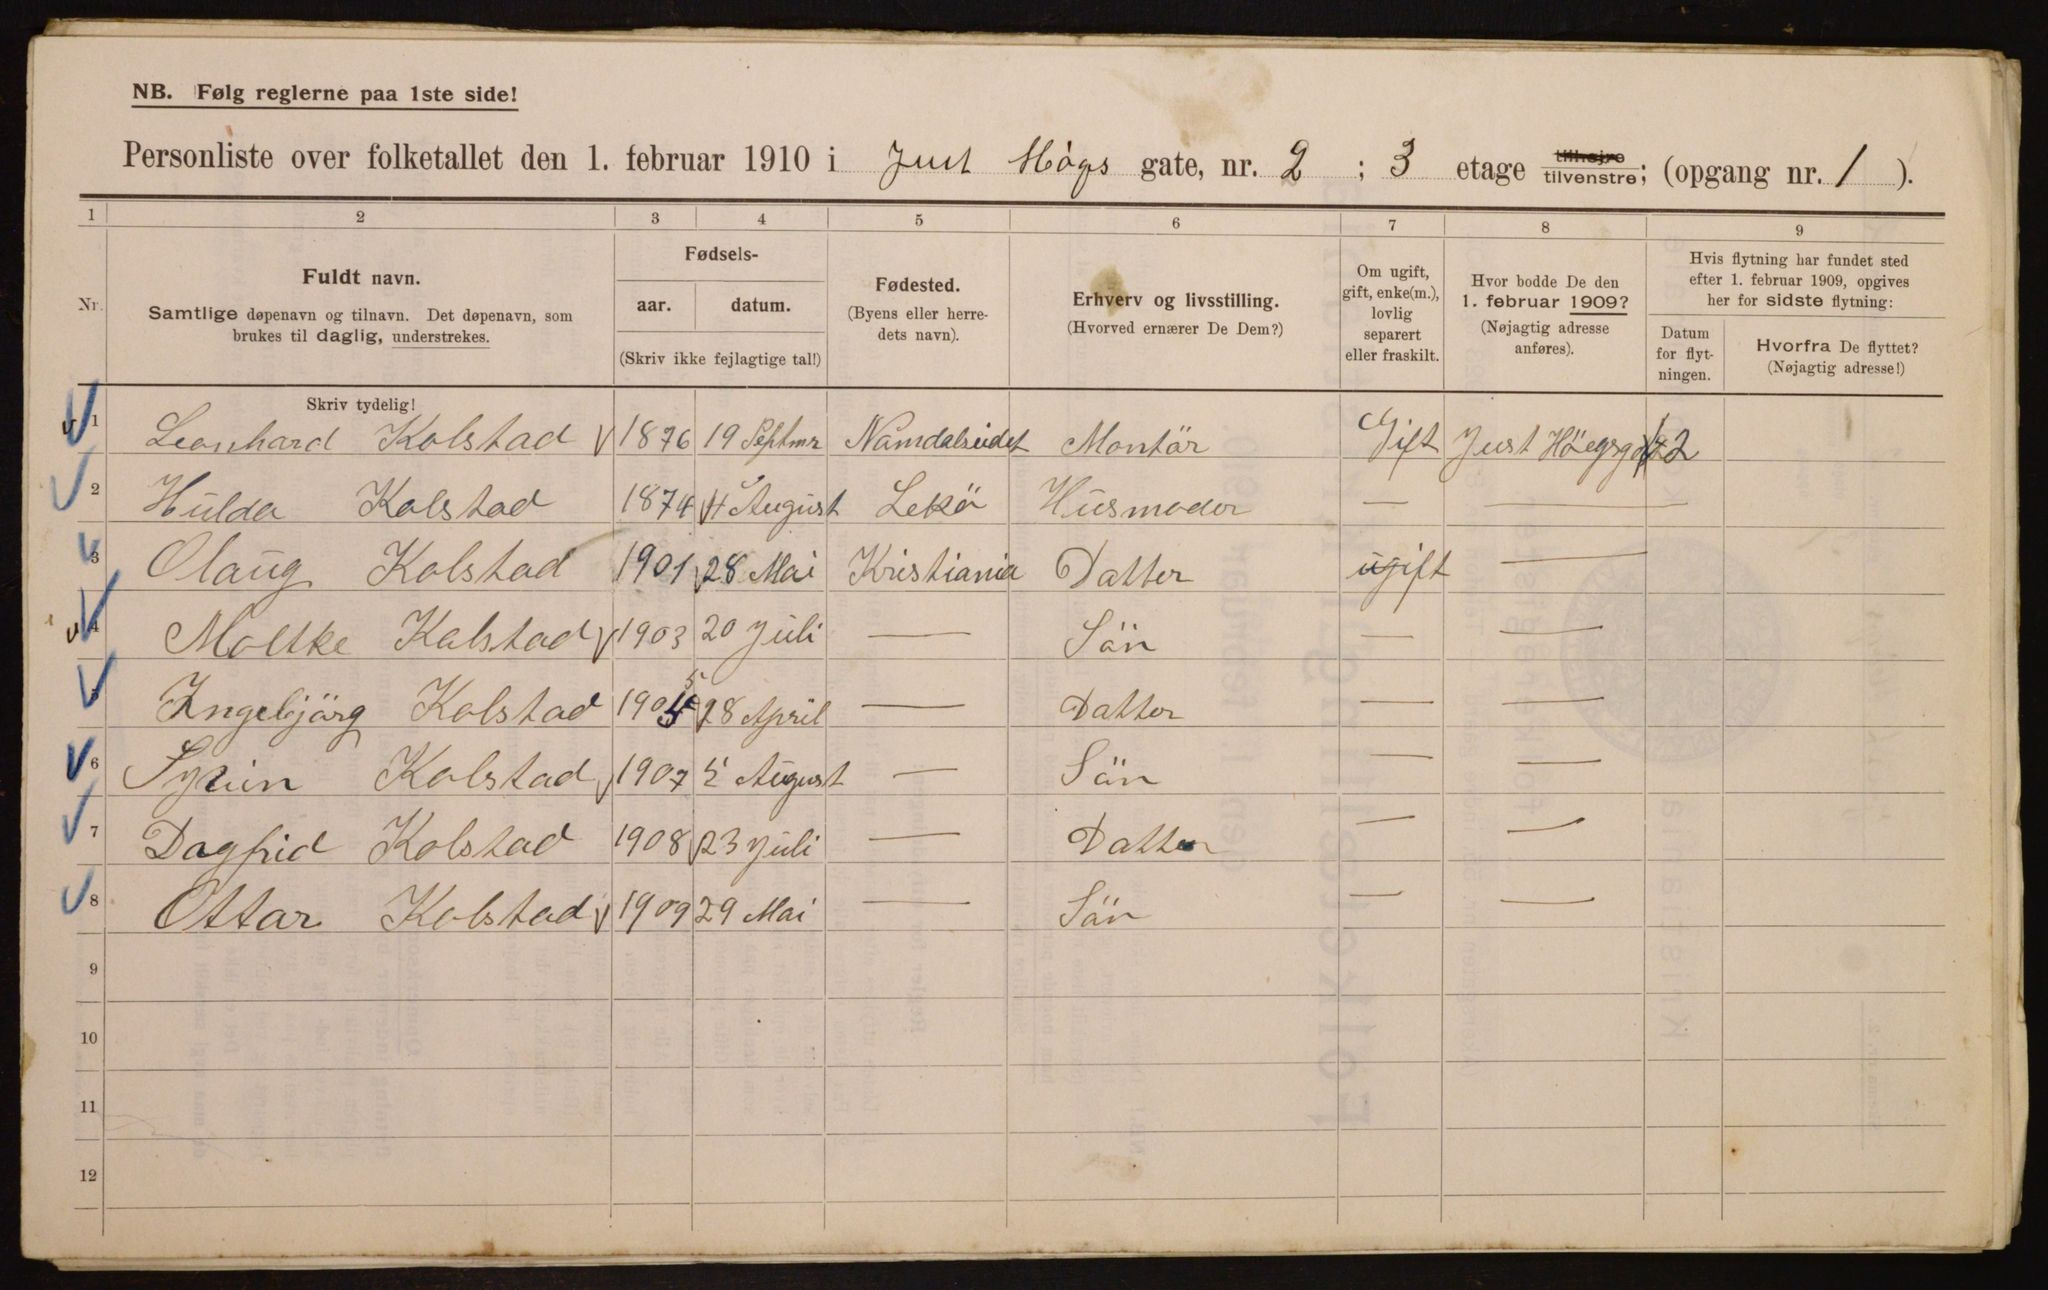 NB. Følg reglerne paa 1ste side!
Personliste over folketallet den 1. februar 1910 i Just Högs gate, nr. 2 ; 3 etage tilhøjre tilvenstre; (opgang nr. 1 ).
1 2 3 4 5 6 7 8 9
Nr.
Fuldt navn.
Samtlige døpenavn og tilnavn. Det døpenavn, som
brukes til daglig, understrekes.
Skriv tydelig!
Fødsels-
aar. datum.
(Skriv ikke fejlagtige tal!)
Fødested.
(Byens eller herre-
dets navn).
Erhverv og livsstilling.
(Hvorved ernærer De Dem?)
Om ugift,
gift, enke(m.),
lovlig
separert
eller fraskilt.
Hvor bodde De den
1. februar 1909?
(Nøjagtig adresse
anføres).
Hvis flytning har fundet sted
efter 1. februar 1909, opgives
her for sidste flytning:
Datum
for flyt-
ningen.
Hvorfra De flyttet?
(Nøjagtig adresse!)
1 Leonhard Kolstad 1876 19 Septmr Namdalseidet Montör Gift Just Höegsgt 2
2 Hulda Kolstad 1874 4 August Lekö Husmoder — —
3 Olaug Kolstad 1901 28 Mai Kristiania Datter ugift —
4 Moltke Kolstad 1903 20 Juli — Sön — —
5 Ingebjörg Kolstad 1905 28 April — Datter — —
6 Kolstad 1907 5 August — Sön — —
7 Dagfrid Kolstad 1908 23 Juli — Datter — —
8 Ottar Kolstad 1909 29 Mai — Sön — —
9
10
11
12